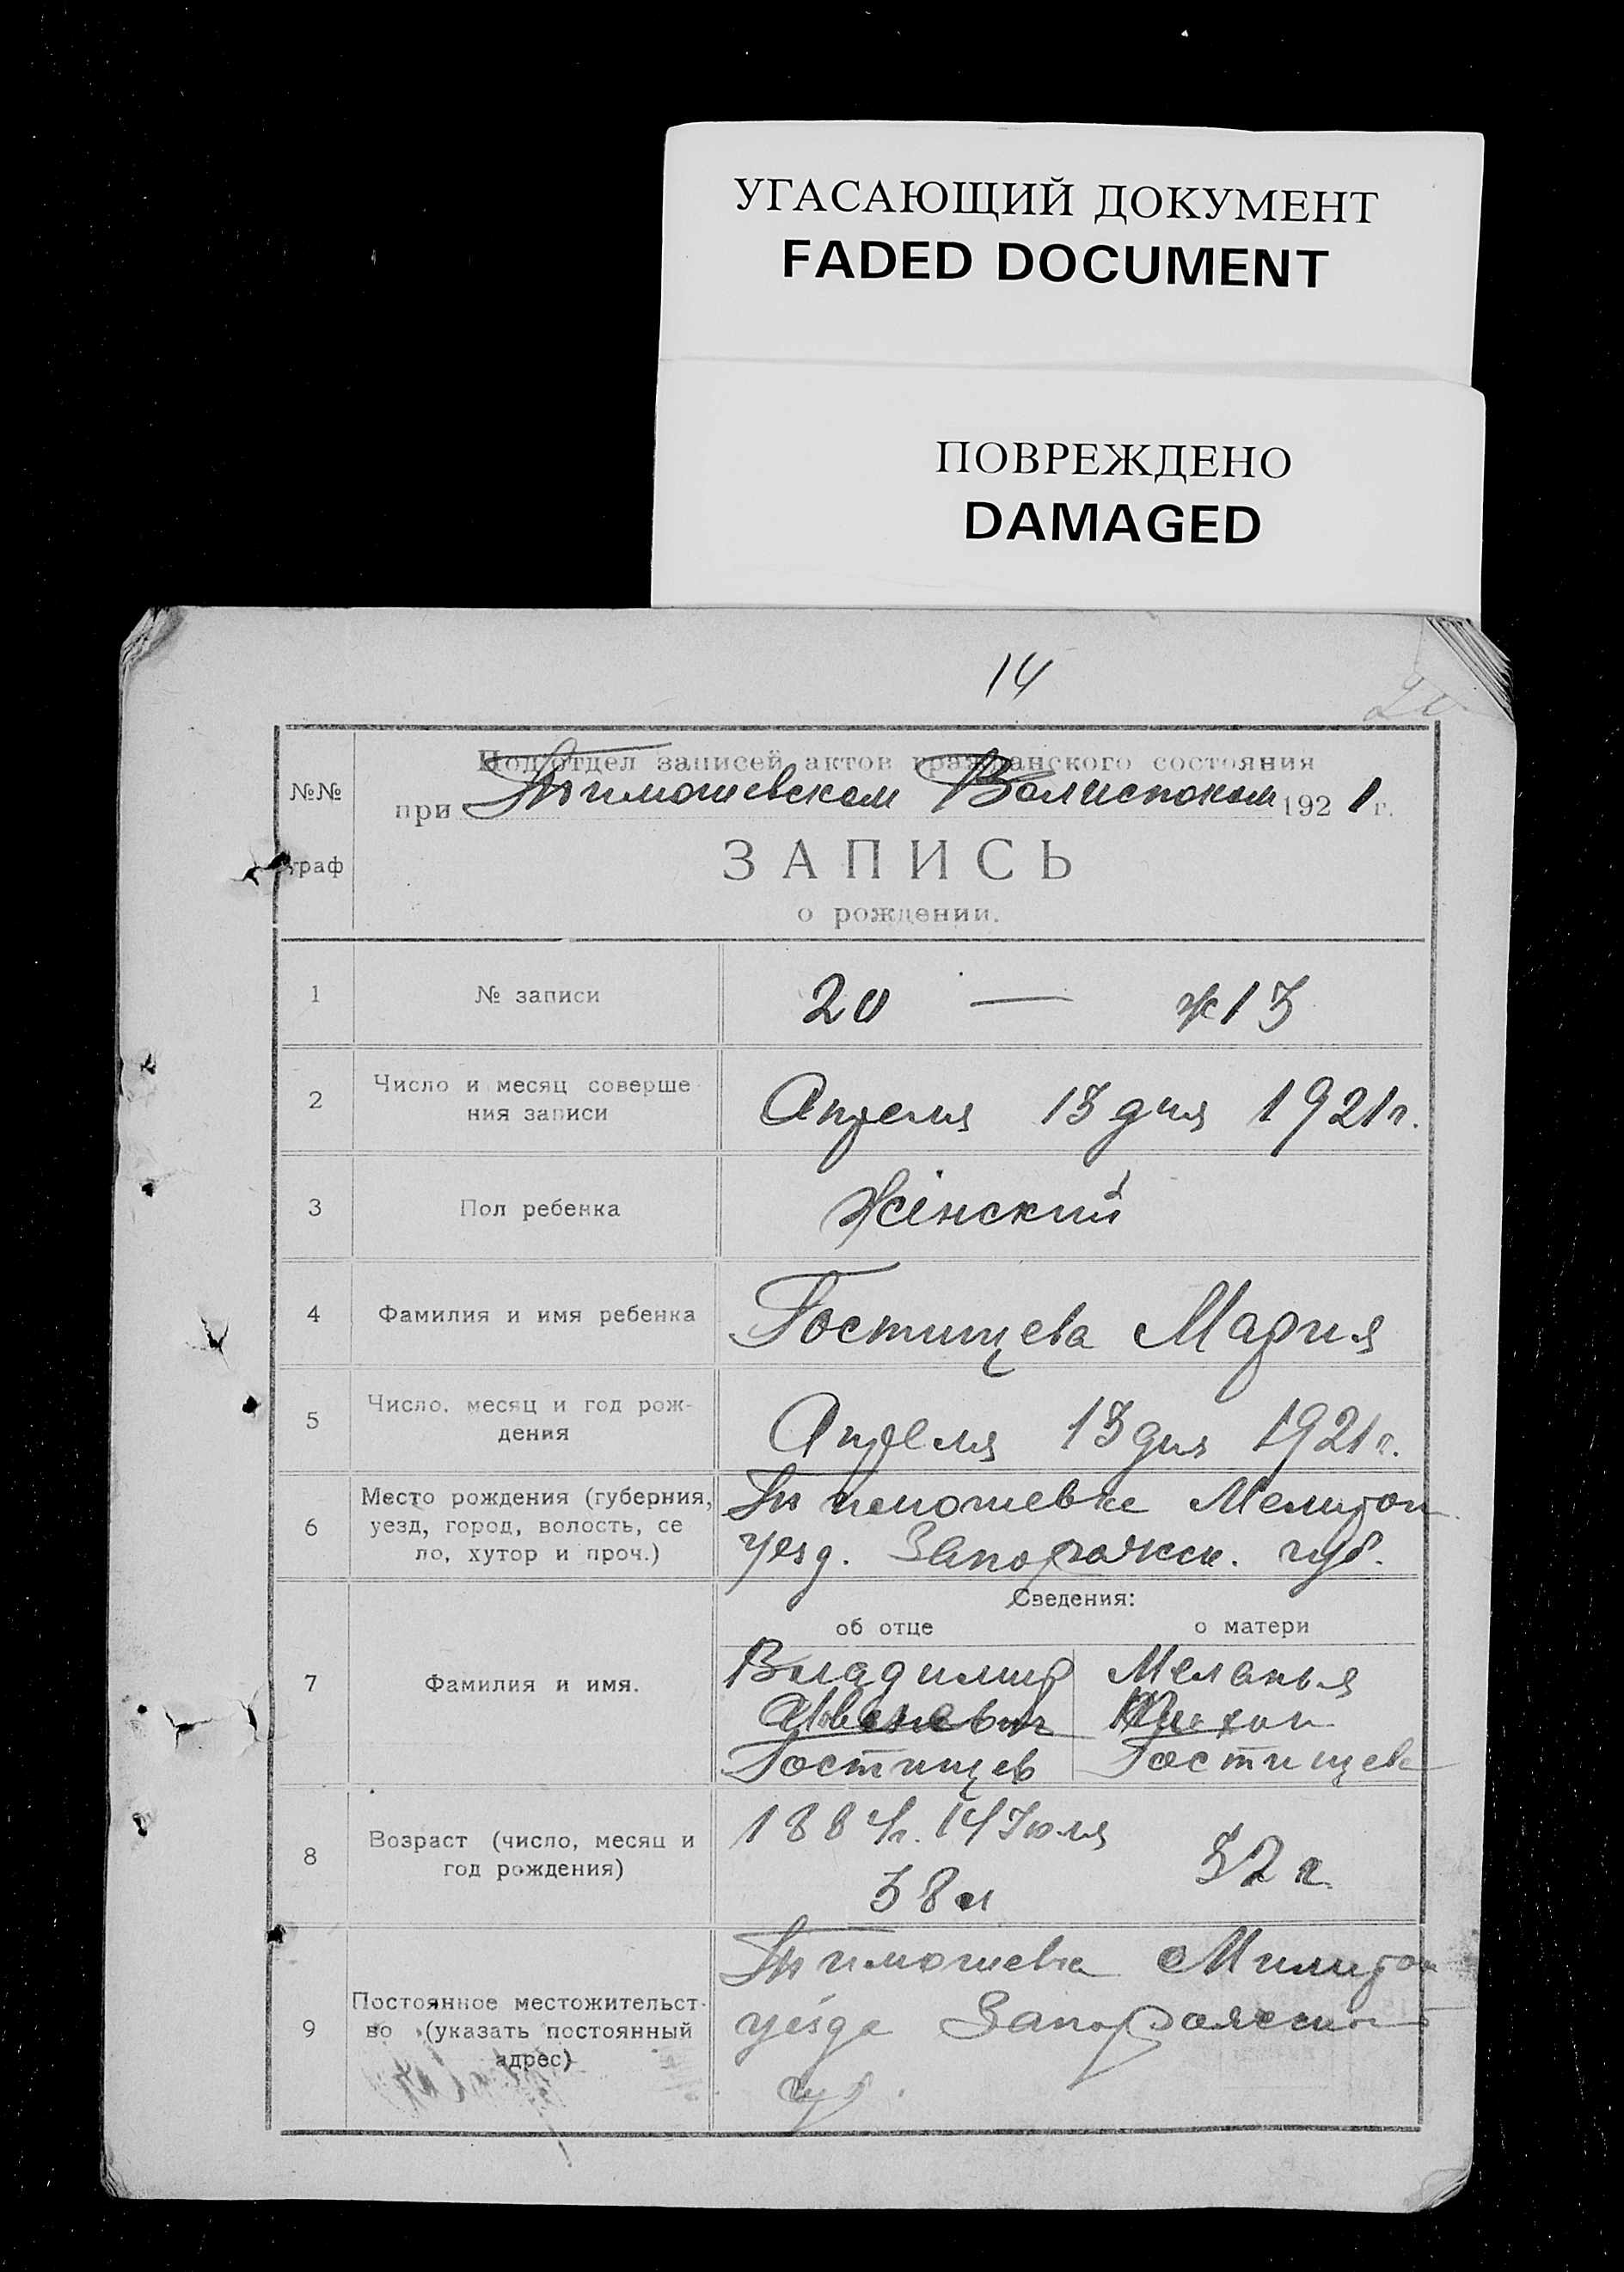 УГАСАЮЩИЙ ДОКУМЕНТ
FADED DOCUMENT
ПОВРЕЖДЕНО
DAMAGED
14
20
№№
граф
Подотдел записей актов гражданского состояния
при Тимошевском Волисполком 1921 г.
ЗАПИСЬ
о рождении.
1 № записи 20 — ж13
2 Число и месяц соверше
ния записи
Апреля 13 дня 1921 г.
3 Пол ребенка Жінский
4 Фамилия и имя ребенка Гостищева Мария
5 Число, месяц и год рож-
дения
Апреля 13 дня 1921 г.
6 Место рождения (губерния,
уезд, город, волость, се
ло, хутор и проч.)
Тимошевке Мелитоп
уезд. Запорожск. губ.
Сведения:
об отце о матери
7 Фамилия и имя.
Владимир
Гостищев
Меланья
Гостищева
8 Возраст (число, месяц и
год рождения)
1884 г. 14 Июля
38 л
32 г.
9 Постоянное местожительст-
во (указать постоянный
адрес)
Тимошевка Милитоп
уезда Запорожской
губ.